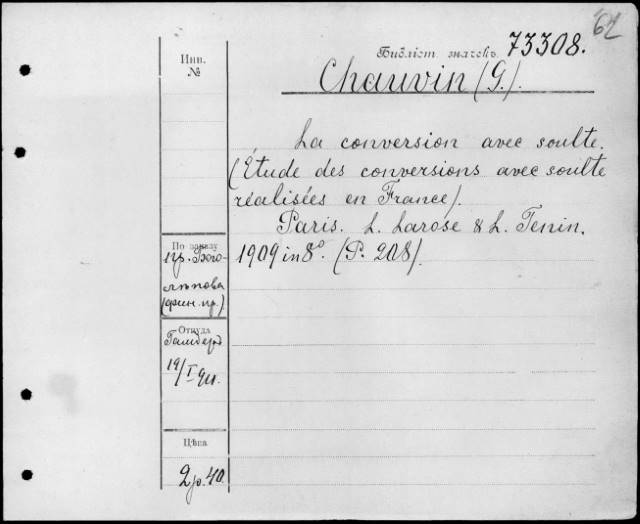 62
Библіот. значекъ 73308.
Инв.
№
Chauvin (G.).
La conversion avec soulte.
(Étude des conversions avec soulte
réalisées en France).
Paris. L. Larose & L. Tenin.
1909 in 8°. (P. 208).
По заказу
пр. Бого-
лѣпова
(фин. пр.)
Откуда
19/I 911.
Цѣна
2 р. 40